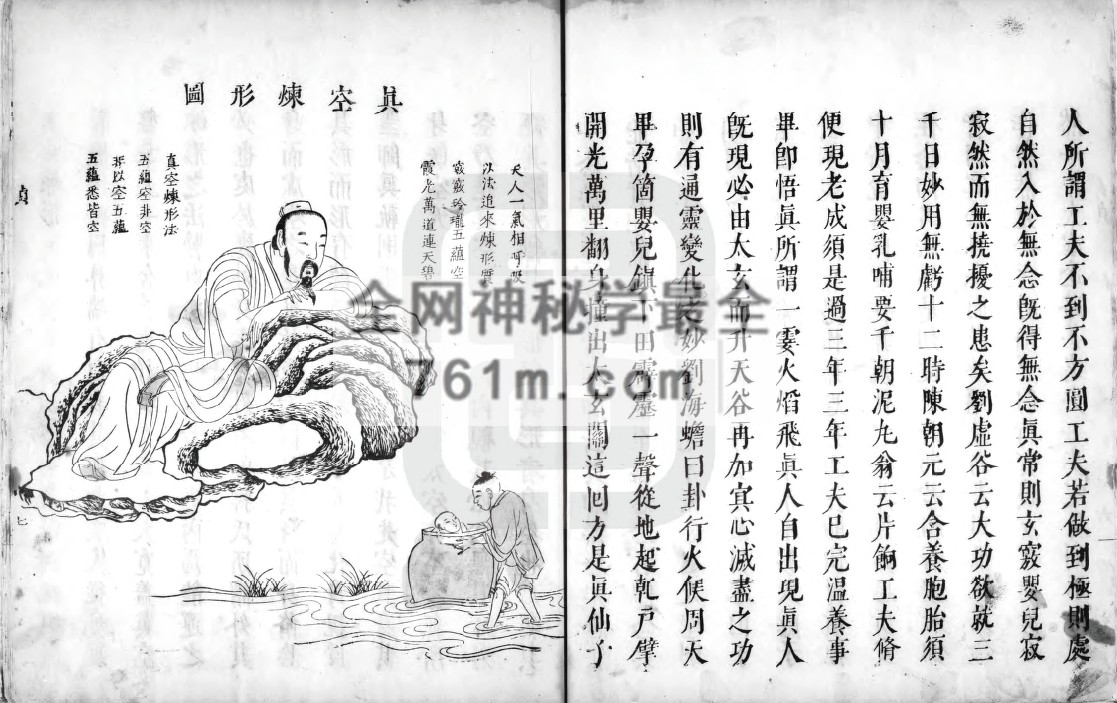 人所謂工夫不到不方圓工夫若做到極則處
自然入於無念旣得無念眞常則玄竅嬰兒寂
寂然而無撓擾之患矣劉虛谷云大功欲就三
千日妙用無虧十二時陳朝元云含養胞胎須
十月育嬰乳哺要千朝泥丸翁云片餉工夫脩
便現老成須是過三年三年工夫巳完溫養事
畢卽悟眞所謂一霎火熖飛眞人自出現眞人
旣現必由太玄而升天谷再加㝠心滅盡之功
則有通靈變化之妙劉海蟾曰卦行火候周天
畢孕箇嬰兒鎮下田霹靂一聲從地起乹戸擘
開光萬里翻身撞出太玄關這囘方是眞仙子
眞空煉形圖
天人一氣相呼吸
以法追來煉形質
竅竅玲瓏五蘊空
霞光萬道連天碧
真空煉形法
五蘊空非空
非以空五蘊
五蘊悉皆空
貞
七
全网神秘学最全
761m.com